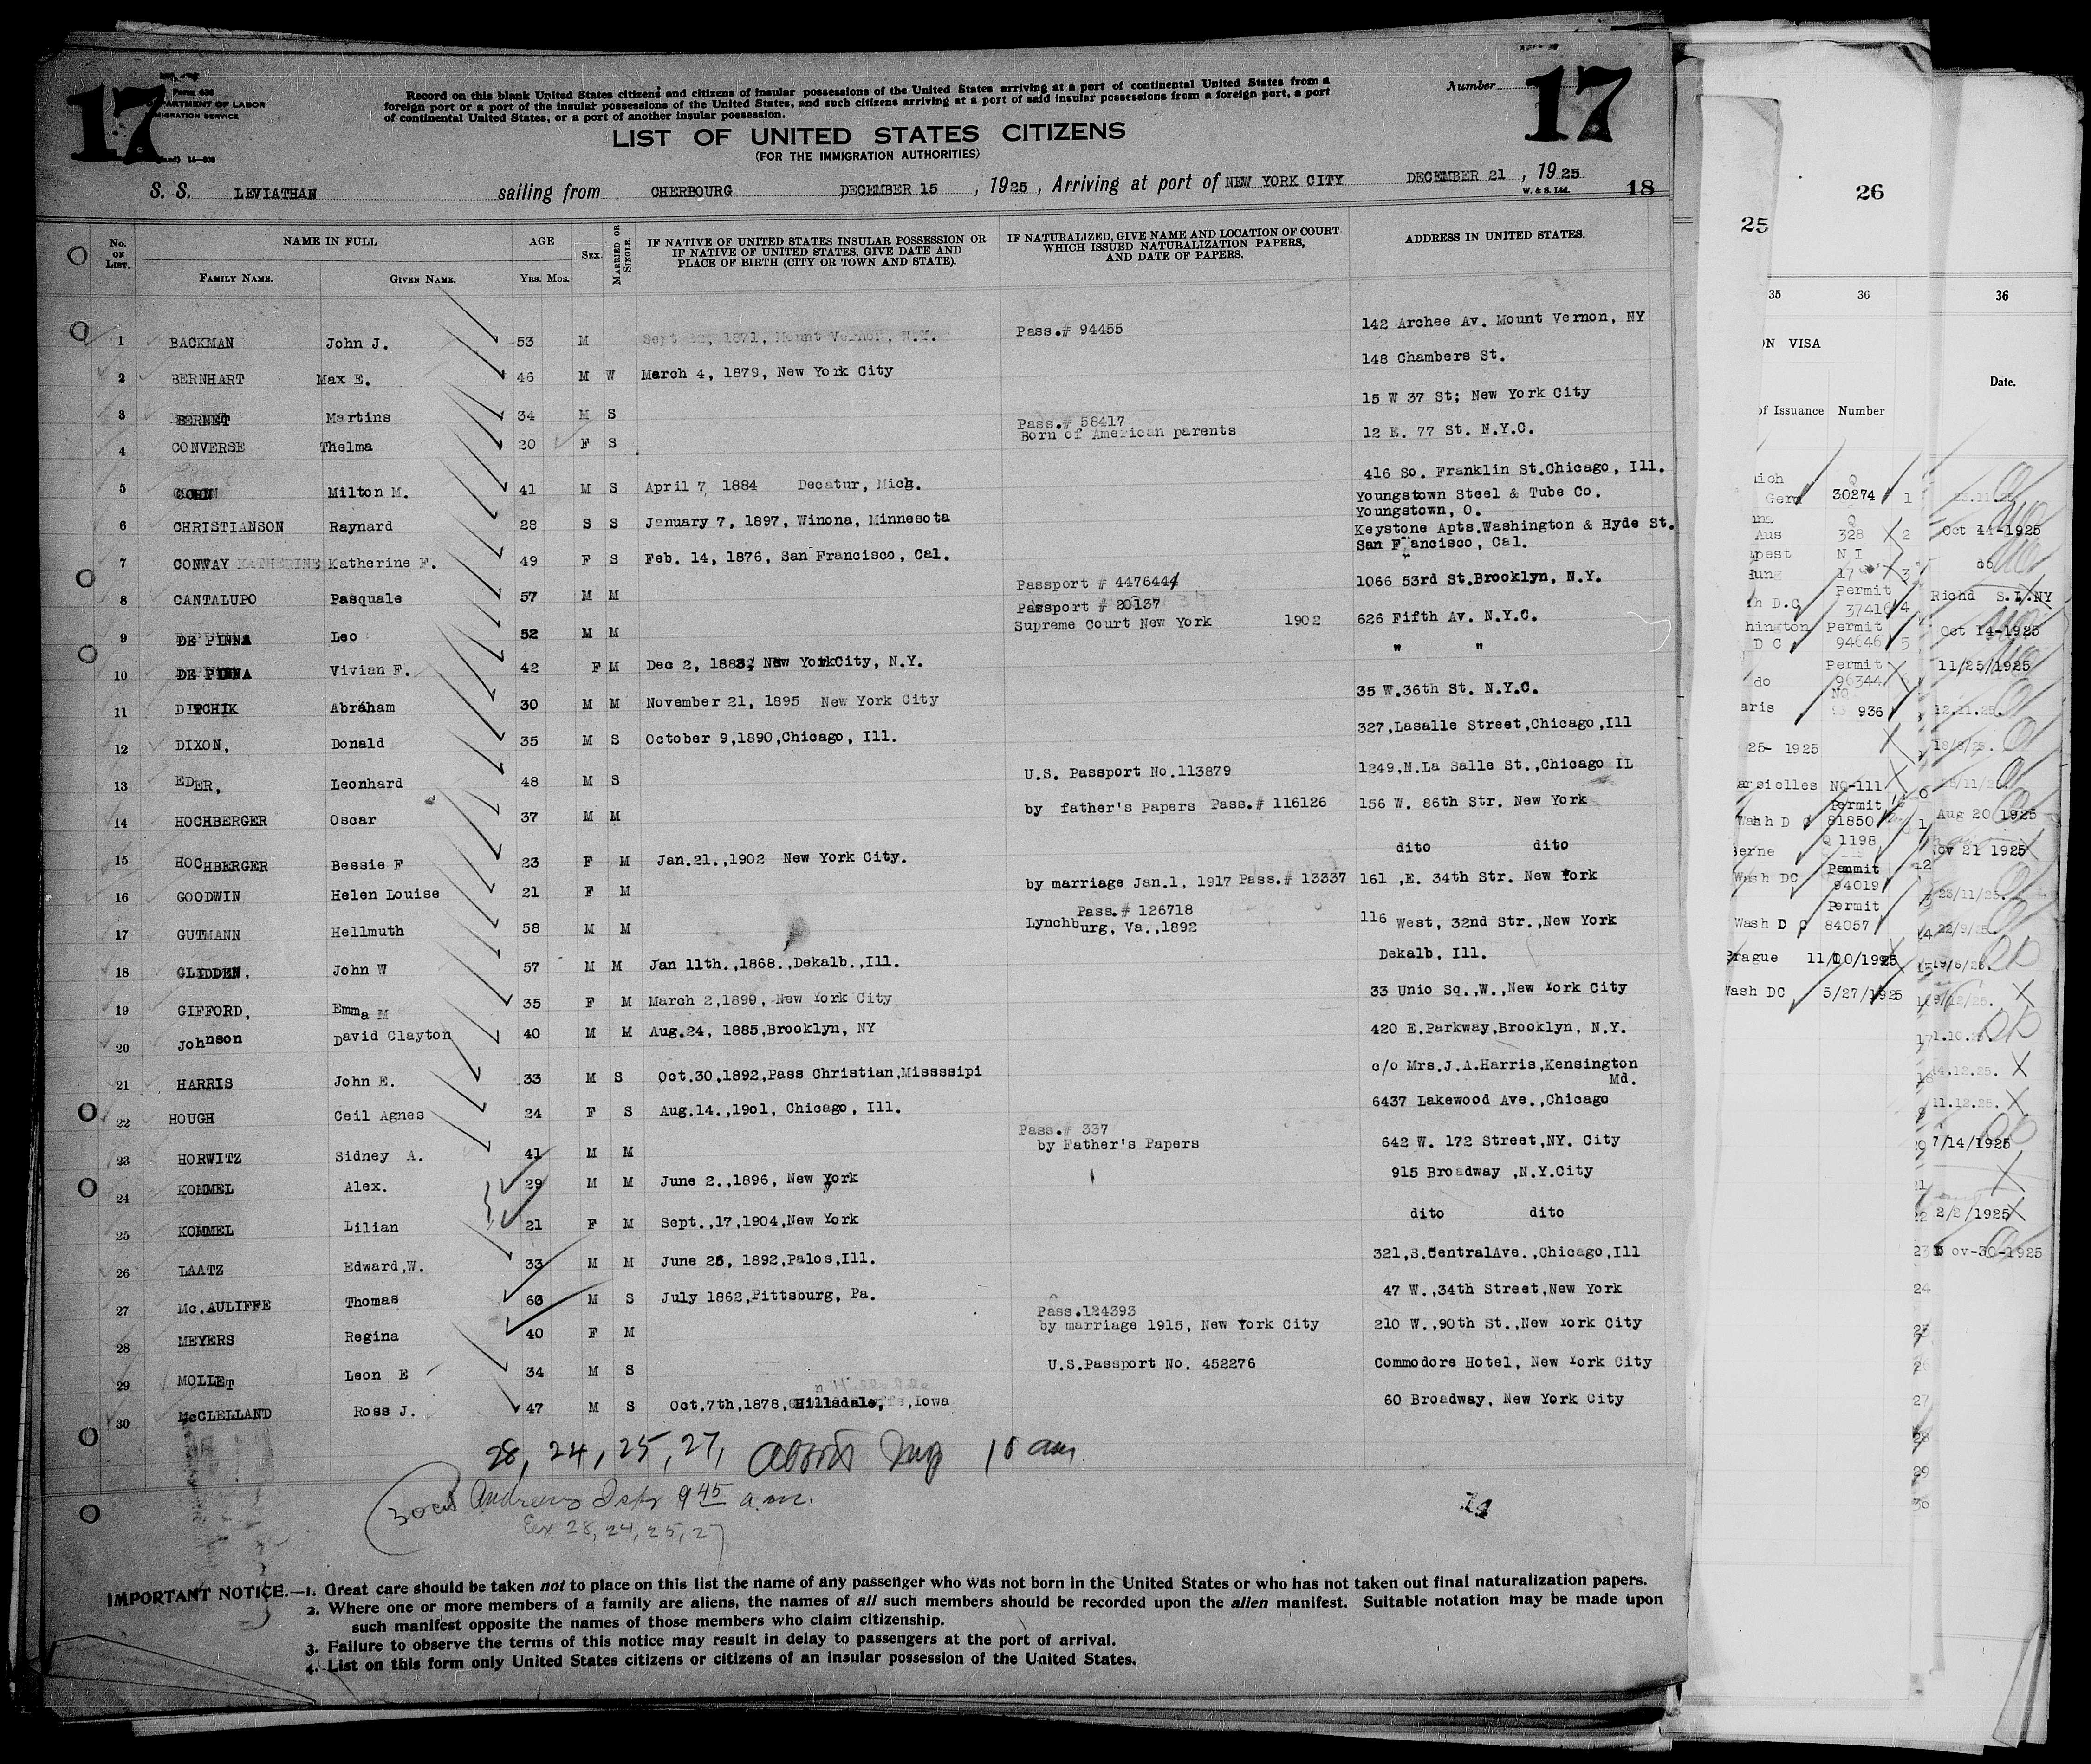 17
Form 630
DEPARTMENT OF LABOR
IMMIGRATION SERVICE
Record on this blank United States citizens and citizens of insular possessions of the United States arriving at a port of continental United States from a
foreign port or a port of the insular possessions of the United States, and such citizens arriving at a port of said insular possessions from a foreign port, a port
of continental United States, or a port of another insular possession.
Number 17
LIST OF UNITED STATES CITIZENS
(FOR THE IMMIGRATION AUTHORITIES)
S. S. LEVIATHAN sailing from CHERBOURG DECEMBER 15, 1925, Arriving at port of NEW YORK CITY DECEMBER 21, 1925
W. & S. Ltd. 18
No. ON LIST. NAME IN FULL AGE SEX. MARRIED OR SINGLE. IF NATIVE OF UNITED STATES INSULAR POSSESSION OR IF NATIVE OF UNITED STATES, GIVE DATE AND PLACE OF BIRTH (CITY OR TOWN AND STATE). IF NATURALIZED, GIVE NAME AND LOCATION OF COURT WHICH ISSUED NATURALIZATION PAPERS, AND DATE OF PAPERS. ADDRESS IN UNITED STATES.
FAMILY NAME. GIVEN NAME. YRS. MOS.
1 BACKMAN John J. 53 M 1871, Mount Vernon, N.Y. Pass.# 94455 142 Archee Av. Mount Vernon, NY
2 BERNHART Max E. 46 M W March 4, 1879, New York City 148 Chambers St.
3 BERNET Martins 34 M S Pass.# 58417 15 W 37 St; New York City
4 CONVERSE Thelma 20 F S Born of American parents 12 E. 77 St. N.Y.C.
5 COHN Milton M. 41 M S April 7, 1884 Decatur, Mich. 416 So. Franklin St.Chicago, Ill.
6 CHRISTIANSON Raynard 28 S S January 7, 1897, Winona, Minnesota Youngstown Steel & Tube Co.
Youngstown, O.
7 CONWAY KATHERINE Katherine F. 49 F S Feb. 14, 1876, San Francisco, Cal. Keystone Apts.Washington & Hyde St.
San Francisco, Cal.
8 CANTALUPO Pasquale 57 M M Passport # 4476444 1066 53rd St.Brooklyn, N.Y.
9 DE PINNA Leo 52 M M Passport # 20137
Supreme Court New York 1902 626 Fifth Av. N.Y.C.
10 DE PINNA Vivian F. 42 F M Dec 2, 1883, New YorkCity, N.Y. " "
11 DITCHIK Abraham 30 M M November 21, 1895 New York City 35 W.36th St. N.Y.C.
12 DIXON, Donald 35 M S October 9,1890,Chicago, Ill. 327,Lasalle Street,Chicago,Ill
13 EDER, Leonhard 48 M S U.S. Passport No.113879 1249,N.La Salle St.,Chicago IL
14 HOCHBERGER Oscar 37 M M by father's Papers Pass.# 116126 156 W. 86th Str. New York
15 HOCHBERGER Bessie F 23 F M Jan.21.,1902 New York City. dito dito
16 GOODWIN Helen Louise 21 F M by marriage Jan.1, 1917 Pass.# 13337 161 ,E. 34th Str. New York
17 GUTMANN Hellmuth 58 M M Pass.# 126718
Lynchburg, Va.,1892 116 West, 32nd Str.,New York
18 GLIDDEN, John W 57 M M Jan 11th.,1868.,Dekalb.,Ill. Dekalb, Ill.
19 GIFFORD, Emma M 35 F M March 2,1890, New York City 33 Unio Sq.,W.,New York City
20 Johnson David Clayton 40 M M Aug.24, 1885,Brooklyn, NY 420 E.Parkway,Brooklyn, N.Y.
21 HARRIS John E. 33 M S Oct.30,1892,Pass Christian,Misssipi c/o Mrs.J.A.Harris,Kensington
Md.
22 HOUGH Ceil Agnes 24 F S Aug.14.,1901, Chicago, Ill. 6437 Lakewood Ave.,Chicago
23 HORWITZ Sidney A. 41 M M Pass.# 337
by Father's Papers 642 W. 172 Street,NY. City
24 KOMMEL Alex. 29 M M June 2.,1896, New York 915 Broadway ,N.Y.City
25 KOMMEL Lilian 21 F M Sept.,17,1904,New York dito dito
26 LAATZ Edward,W. 33 M M June 25, 1892,Palos,Ill. 321,S.CentralAve.,Chicago,Ill
27 Mc.AULIFFE Thomas 63 M S July 1862,Pittsburg, Pa. 47 W.,34th Street,New York
28 MEYERS Regina 40 F M Pass.124393
by marriage 1915, New York City 210 W.,90th St.,New York City
29 MOLLET Leon E 34 M S U.S.Passport No. 452276 Commodore Hotel, New York City
30 McCLELLAND Ross J. 47 M S Oct.7th,1878, Hillsdale, Iowa 60 Broadway, New York City
28, 24, 25, 27, 10 am
Andrews Insp 9 45 a.m.
Ex 28, 24, 25, 27
IMPORTANT NOTICE.—1. Great care should be taken not to place on this list the name of any passenger who was not born in the United States or who has not taken out final naturalization papers.
2. Where one or more members of a family are aliens, the names of all such members should be recorded upon the alien manifest. Suitable notation may be made upon
such manifest opposite the names of those members who claim citizenship.
3. Failure to observe the terms of this notice may result in delay to passengers at the port of arrival.
4. List on this form only United States citizens or citizens of an insular possession of the United States.
25
26
35 36
36
VISA
Date.
of Issuance Number
30274 1
Aus 328 2 Oct 14-1925
N I
17 3 do
Permit
D.C 37416 4 Richd S.I.NY
Permit
D C 94646 5 Oct 14-1925
Permit
do 96344 11/25/1925
NO
aris 936 12.11.25
25- 1925
arsielles NO-111
Permit
Wash D C 81850 Aug 20 1925
Berne Q 1198 Nov 21 1925
Permit
Wash DC 94019 12 23/11/25
Permit
Wash D C 84057 14 22/9/25
Prague 11/10/1925 15 19/6/25
Wash DC 5/27/1925
14.12.25.
11.12.25.
7/14/1925
22 2/2/1925
23 ov-30-1925
24
25
26
27
28
29
30